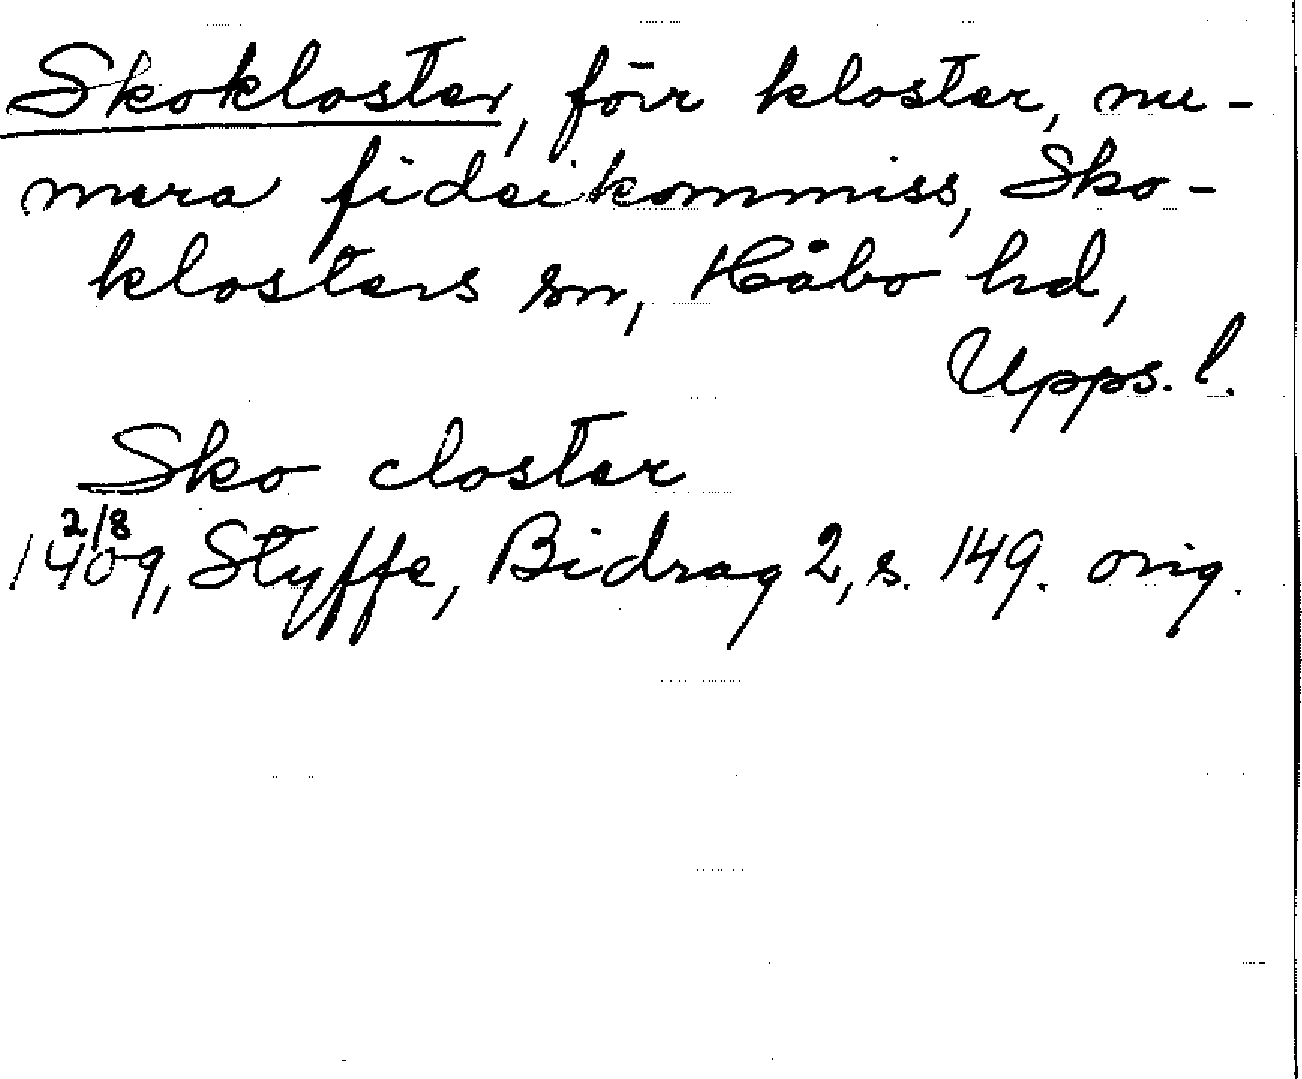 Skokloster, förr kloster, nu-
mera fideikommiss, Sko-
klosters sn, Håbo hd,
Upps. l.
Sko closter
1409 2/8, Styffe, Bidrag 2, s. 149. orig.